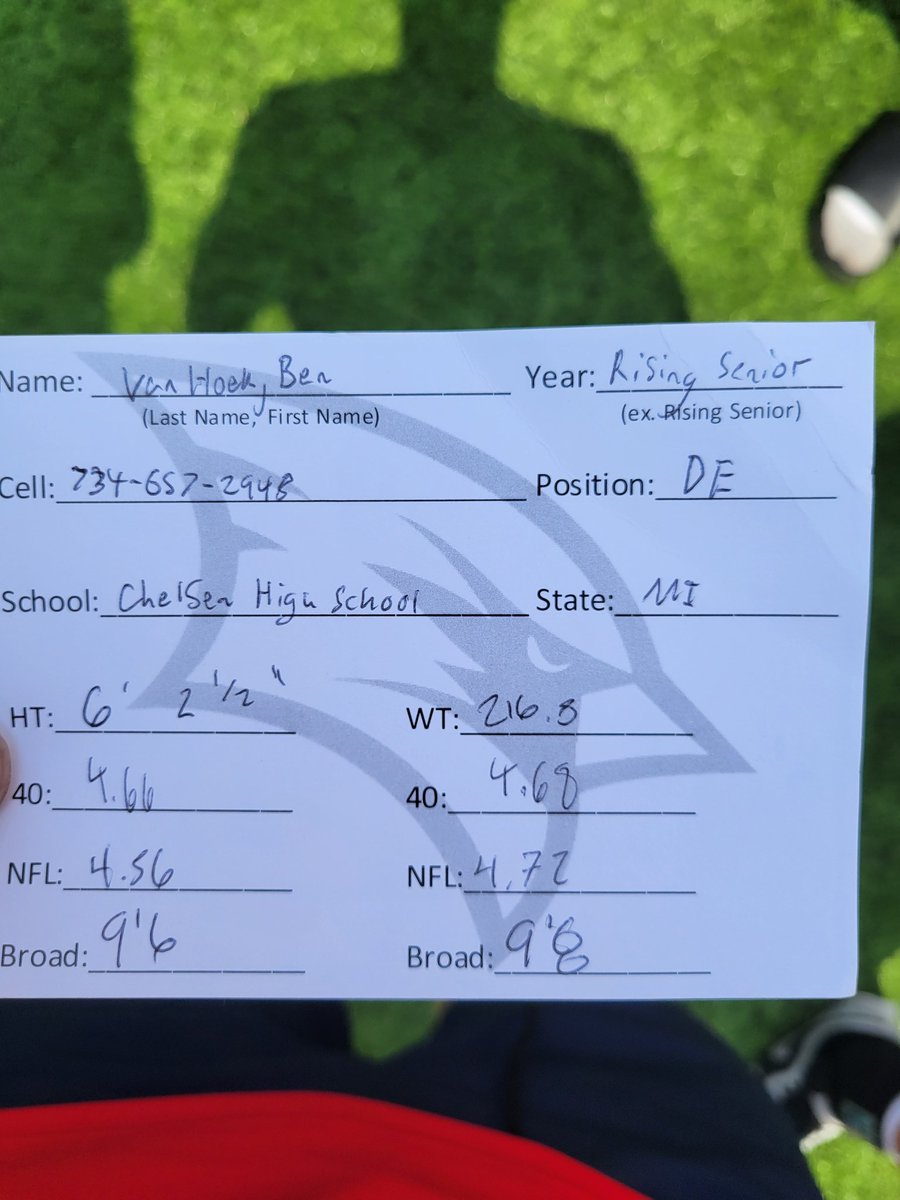 Name: Van Hoek, Ben Year: Rising Senior
(Last Name, First Name) (ex. Rising Senior)
Cell: 734-657-2948 Position: DE
School: Chelsea High School State: MI
HT: 6' 2 1/2" WT: 216.8
40: 4.66 40: 4.68
NFL: 4.56 NFL: 4.72
Broad: 9'6 Broad: 9'8